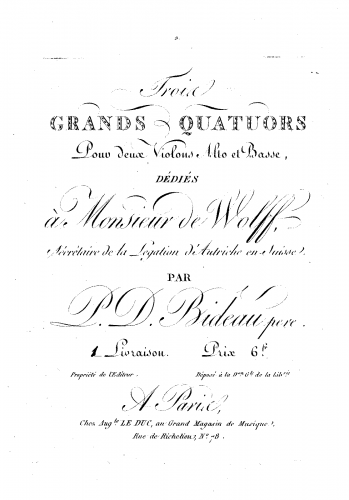 Trois
GRANDS QUATUORS
Pour deux Violons Alto et Basse,
DÉDIÉS
à Monsieur de Wolff,
Sécrétaire de la Légation d'Autriche en Suisse.
PAR
P. D. Bideau pere.
1 Livraison. Prix 6.ᶠ
Propriété de l'Editeur. Déposé à la D.ᵒⁿ G.ˡᵉ de la Lib.ʳⁱᵉ
A Paris,
Chez Aug.ᵗᵉ LE DUC, au Grand Magasin de Musique,
Rue de Richelieu, N.º 78.